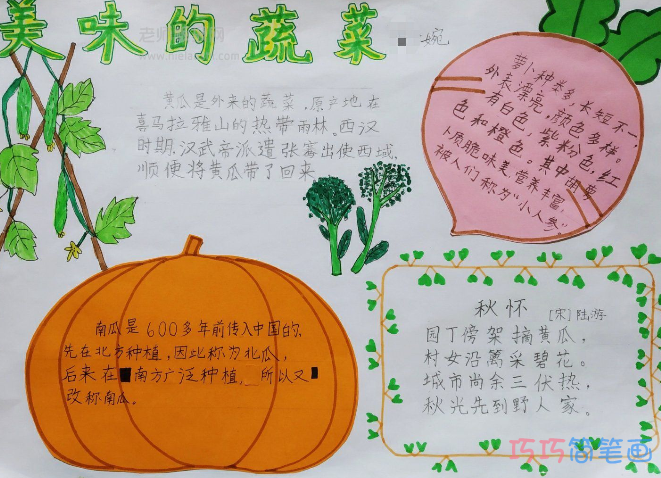 美味的蔬菜
婉
黄瓜是外来的蔬菜，原产地在
喜马拉雅山的热带雨林。西汉
时期，汉武帝派遣张骞出使西域，
顺便将黄瓜带了回来
萝卜种类多，长短不一，
外表漂亮，颜色多样。
有白色，紫粉色，红
色和橙色。其中胡萝
卜质脆味美，营养丰富，
被人们称为“小人参”
南瓜是600多年前传入中国的，
先在北方种植，因此称为北瓜，
后来在南方广泛种植，所以又
改称南瓜。
秋怀
[宋]陆游
园丁傍架摘黄瓜，
村女沿篱采碧花。
城市尚余三伏热，
秋光先到野人家。
巧巧简笔画